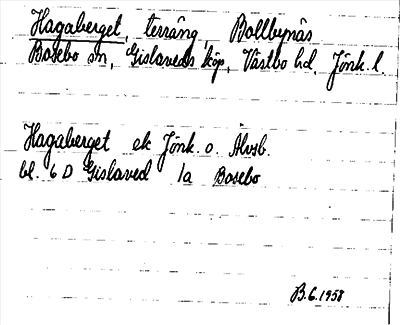 Hagaberget, terräng, Bollbynäs
Bosebo sn, Gislaveds köp, Västbo hd, Jönk. l.
Hagaberget ek Jönk. o. Älvsb.
bl. 6 D Gislaved 1a Bosebo
B.6.1958